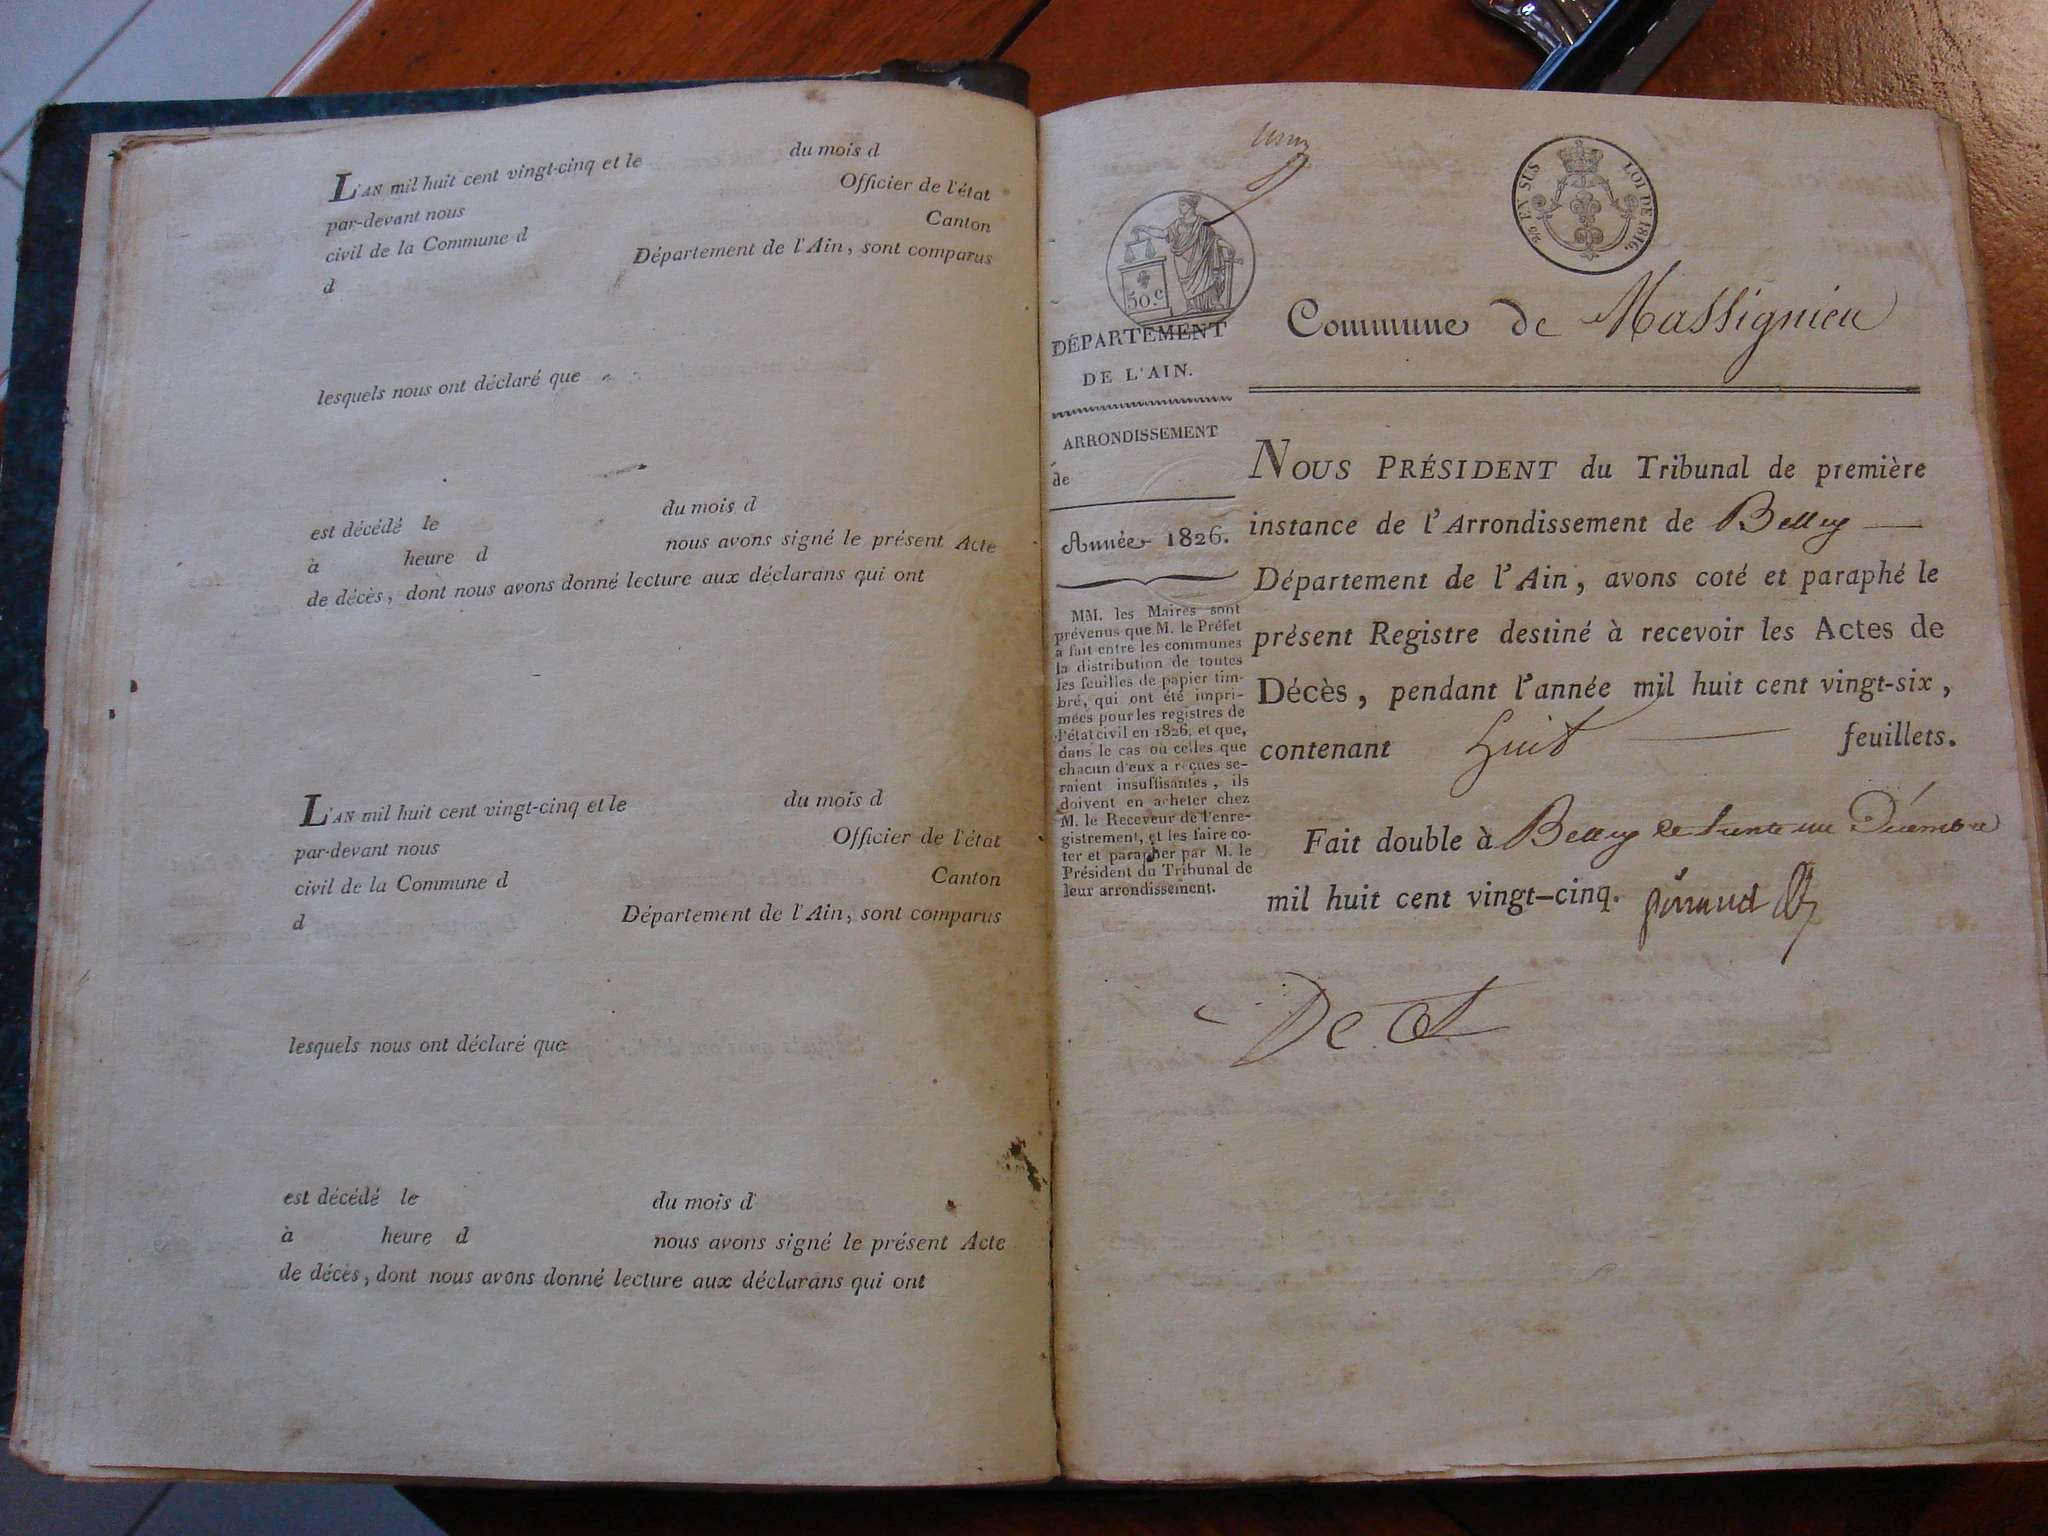 L'AN mil huit cent vingt-cinq et le du mois d
par-devant nous Officier de l'état
civil de la Commune d Canton
d Département de l'Ain, sont comparus
lesquels nous ont déclaré que
est décédé le du mois d
à heure d nous avons signé le présent Acte
de décès, dont nous avons donné lecture aux déclarans qui ont
L'AN mil huit cent vingt-cinq et le du mois d
par-devant nous Officier de l'état
civil de la Commune d Canton
d Département de l'Ain, sont comparus
lesquels nous ont déclaré que
est décédé le du mois d
à heure d nous avons signé le présent Acte
de décès, dont nous avons donné lecture aux déclarans qui ont
EN SUS LOI DE 1816.
50.c
DÉPARTEMENT
DE L'AIN.
ARRONDISSEMENT
de
Année 1826.
MM. les Maires sont
prévenus que M. le Préfet
a fait entre les communes
la distribution de toutes
les feuilles de papier tim-
bré, qui ont été impri-
mées pour les registres de
l'état civil en 1826, et que,
dans le cas où celles que
chacun d'eux a reçues se-
raient insuffisantes, ils
doivent en acheter chez
M. le Receveur de l'enre-
gistrement, et les faire co-
ter et parapher par M. le
Président du Tribunal de
leur arrondissement.
Commune de Massignieu
NOUS PRÉSIDENT du Tribunal de première
instance de l'Arrondissement de Belley
Département de l'Ain, avons coté et paraphé le
présent Registre destiné à recevoir les Actes de
Décès, pendant l'année mil huit cent vingt-six,
contenant huit feuillets.
Fait double à Belley le trente un Décembre
mil huit cent vingt-cinq.